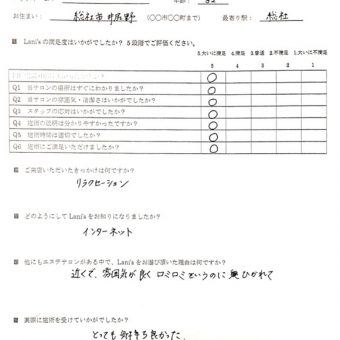 お住まい： 総社市井尻野 （〇〇市〇〇町まで） 最寄り駅： 総社
Lani'sの満足度はいかがでしたか？ 5段階でご評価ください。
5.大いに満足 4.満足 3.普通 2.不満足 1.大いに不満足
5 4 3 2 1
Q1 当サロンの場所はすぐにわかりましたか？ ○
Q2 当サロンの雰囲気・清潔さはいかがでしたか？ ○
Q3 スタッフの対応はいかがでしたか？ ○
Q4 施術の説明は分かりやすかったですか？ ○
Q5 施術時間は適切でしたか？ ○
Q6 施術にご満足いただけましたか？ ○
ご来店いただいたきっかけは何ですか？
リラクゼーション
どのようにしてLani'sをお知りになりましたか？
インターネット
他にもエステサロンがある中で、Lani'sをお選び頂いた理由は何ですか？
近くで、雰囲気が良く ロミロミというのに 興ひかれて
実際に施術を受けていかがでしたか？
とっても 気持ち良かった。